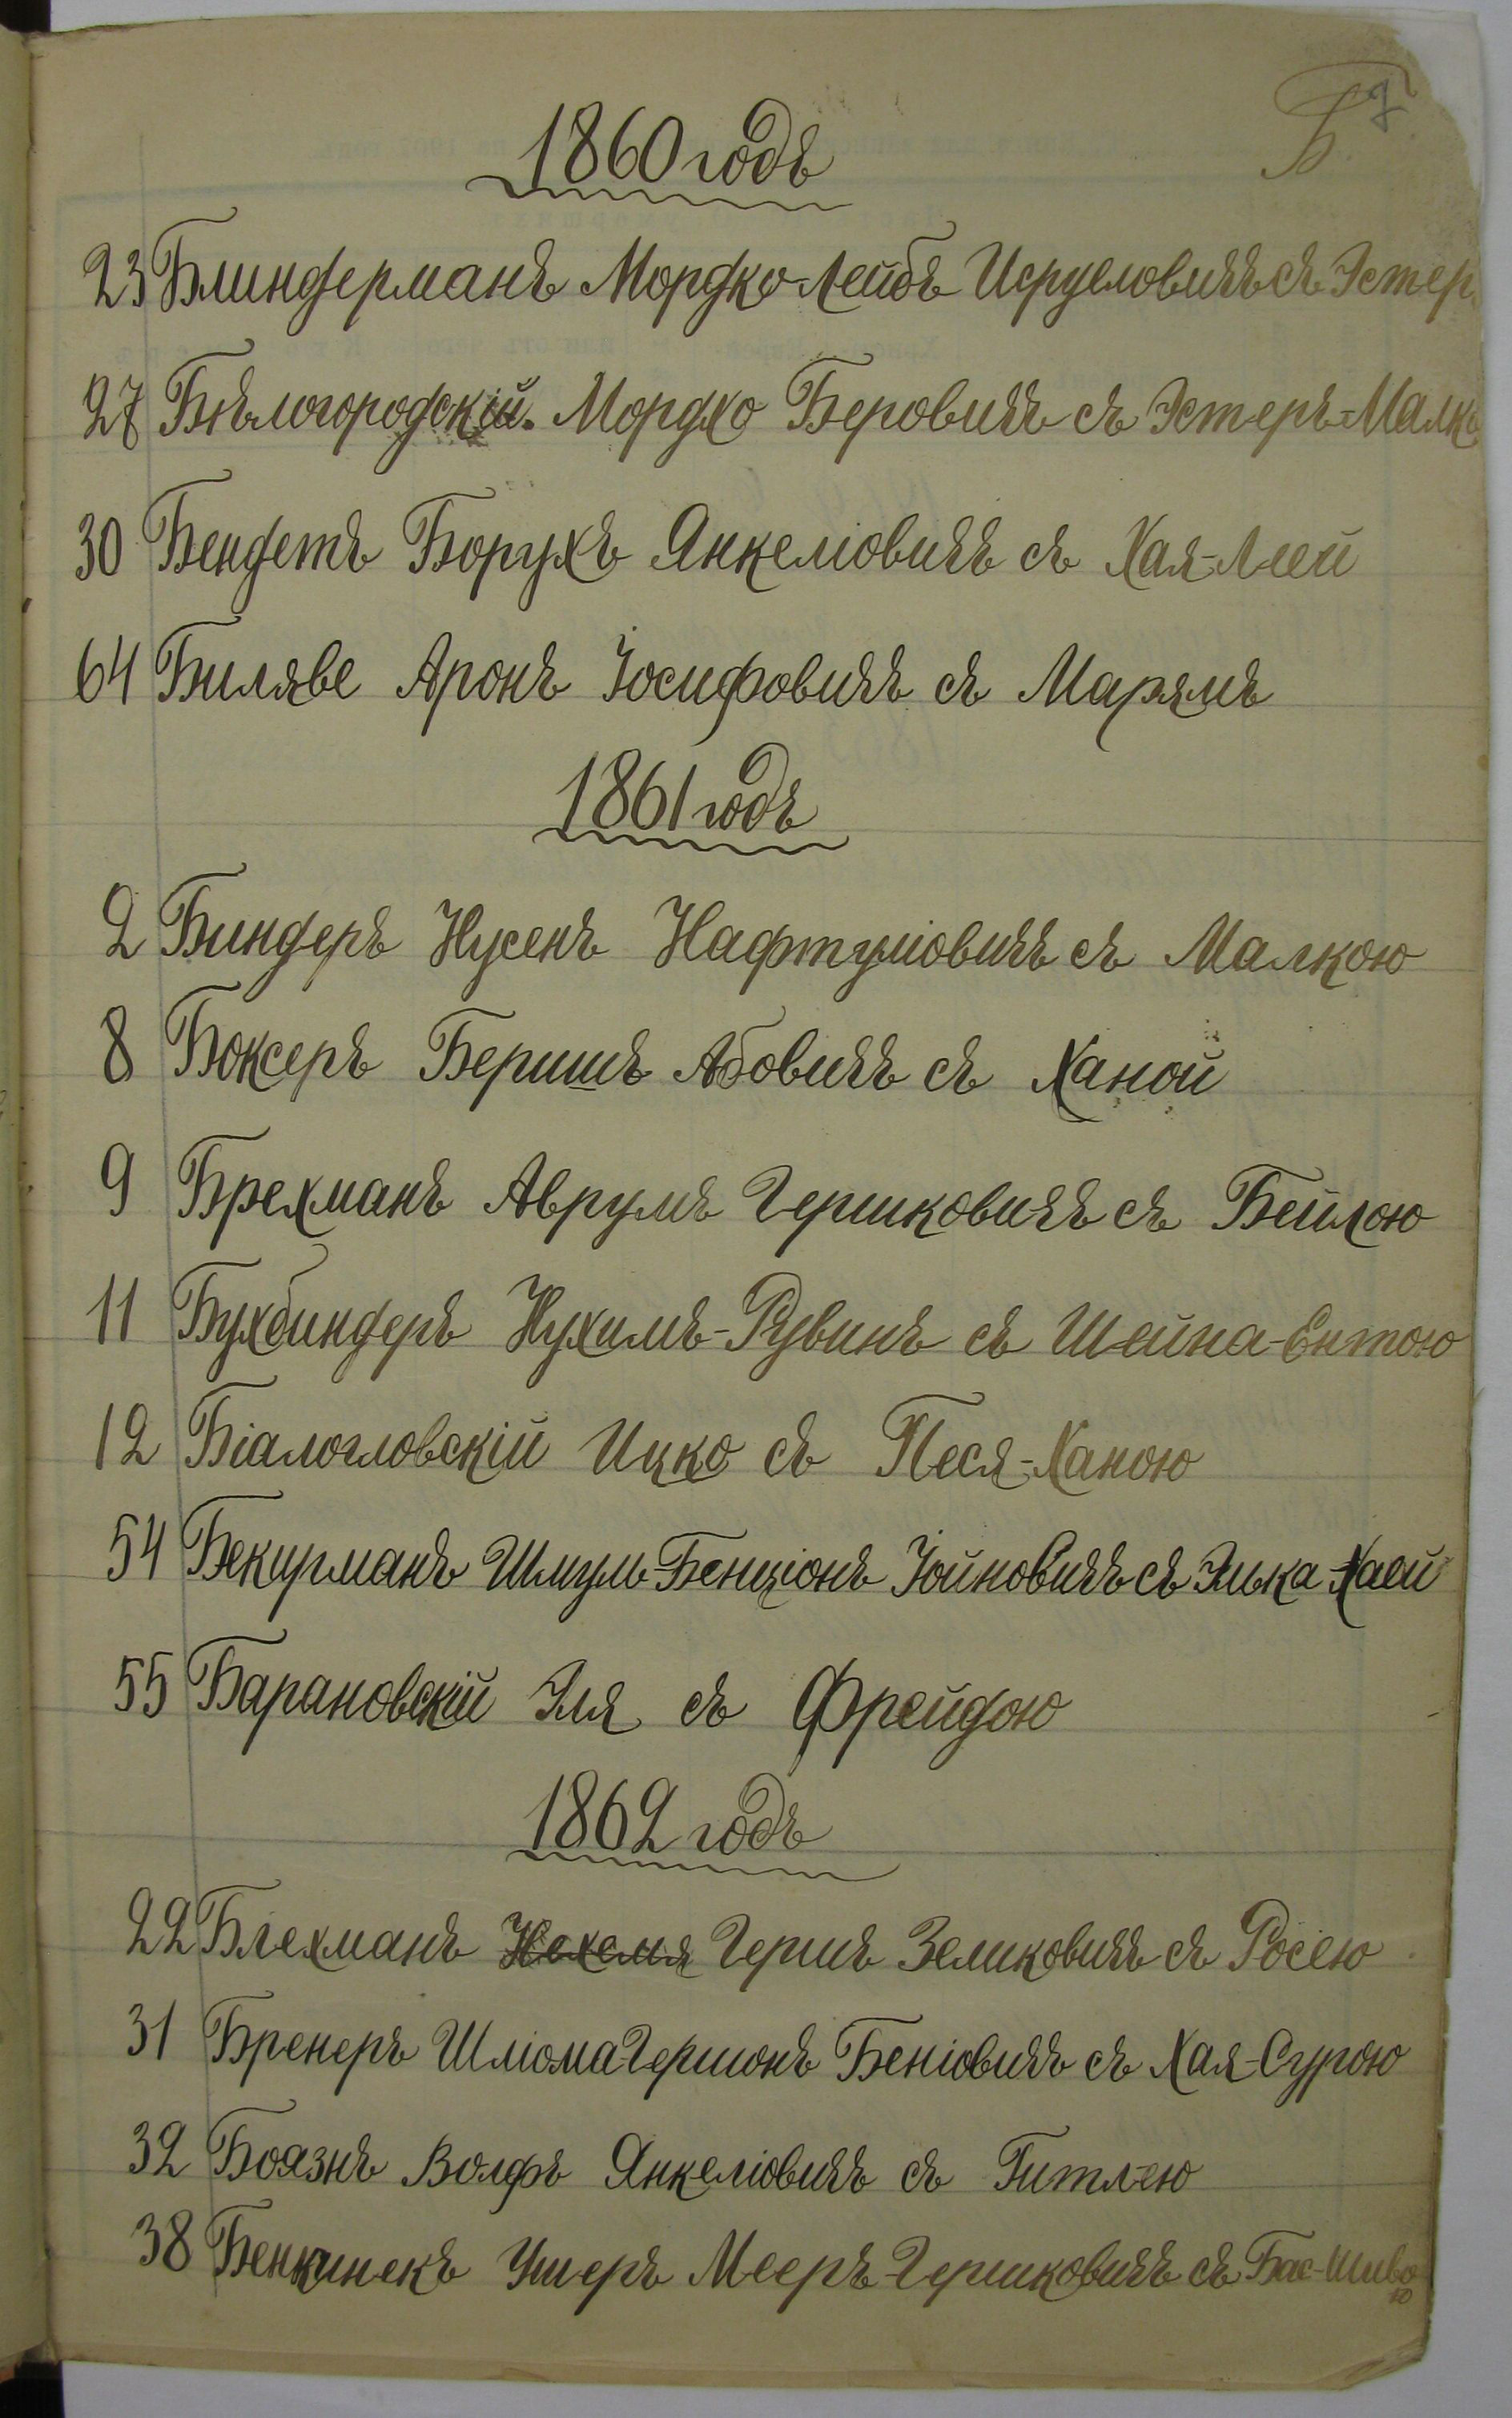 Б. 8
1860 годъ
23 Блиндерманъ Мордко-Лейбъ Исруеловичъ съ Эстер
27 Бѣлогородскій. Мордко Беровичъ съ Эстеръ-Малк
30 Бендетъ Борухъ Янкеліовичъ съ Хая-Леей
64 Биляве Аронъ Іосифовичъ съ Марямъ
1861 годъ
2 Биндеръ Нусенъ Нафтуліовичъ съ Малкою
8 Боксеръ Беришъ Абовичъ съ Ханой
9 Брехманъ Аврумъ Гершковичъ съ Бейлою
11 Бухбиндеръ Нухимъ-Рувинъ съ Шейна-Ентою
12 Біалогловскій Ицко съ Песя-Ханою
54 Бекурманъ Шмуль-Бенціонъ Іойновичъ съ Элька-Хаей
55 Барановскій Эля съ Фрейдою
1862 годъ
22 Блехманъ Нехемя Гершъ Зеликовичъ съ Росею
31 Бренеръ Шліома-Гершонъ Беніовичъ съ Хая-Сурою
32 Боязнъ Волфъ Янкеліовичъ съ Гитлею
38 Ушеръ Мееръ-Гершковичъ съ Бас-Шивою